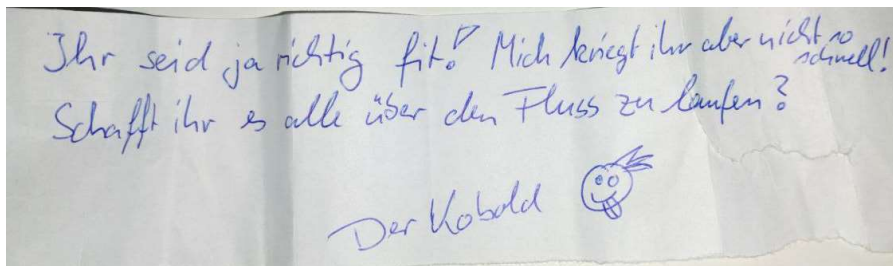 Ihr seid ja richtig fit! Mich kriegt ihr aber nicht so schnell!
Schafft ihr es alle über den Fluss zu laufen?
Der Kobold